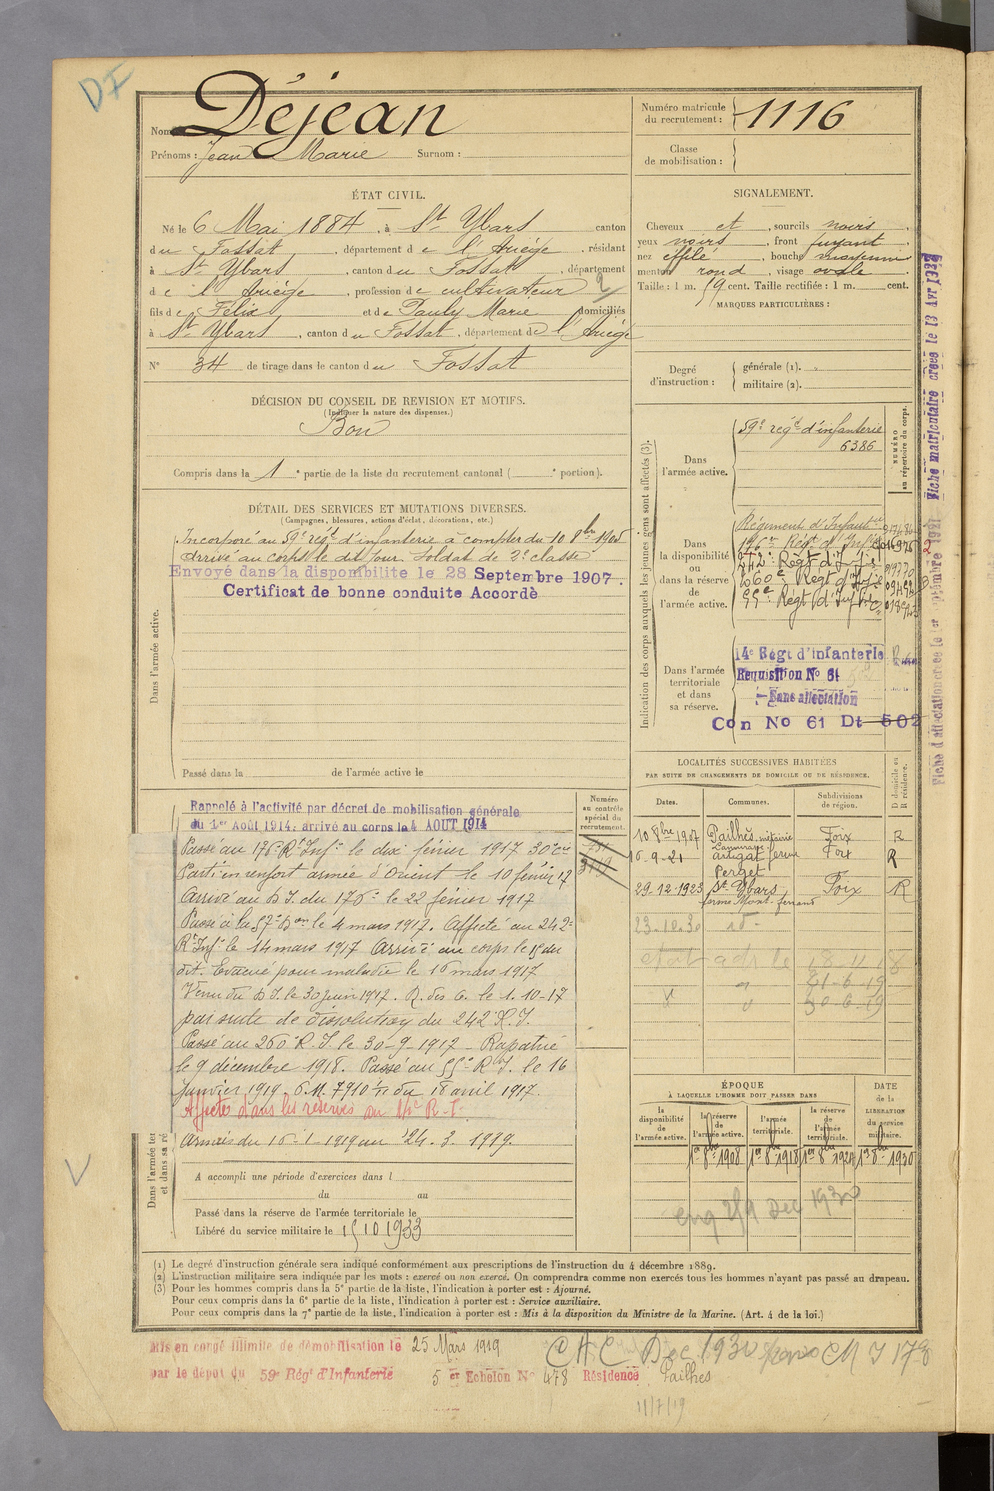 DF
Nom : Déjean
Prénoms : Jean Marie Surnom :
Numéro matricule du recrutement : 1116
Classe de mobilisation :
ÉTAT CIVIL.
Né le 6 Mai 1884, à St Ybars canton
du Fossat, département de l'Ariège, résidant
à St Ybars, canton du Fossat, département
de l'Ariège, profession de cultivateur
fils de Félix et de Pauly Marie domiciliés
à St Ybars, canton du Fossat, département de l'Ariège
N° 34 de tirage dans le canton du Fossat
SIGNALEMENT.
Cheveux et, sourcils noirs
yeux noirs, front fuyant
nez effilé, bouche moyenne
menton rond, visage ovale
Taille : 1 m. 59 cent. Taille rectifiée : 1 m. cent.
MARQUES PARTICULIÈRES :
Degré d'instruction : générale (1).
militaire (2).
DÉCISION DU CONSEIL DE REVISION ET MOTIFS.
(Indiquer la nature des dispenses.)
Bon
Compris dans la 1e partie de la liste du recrutement cantonal ( e portion).
DÉTAIL DES SERVICES ET MUTATIONS DIVERSES.
(Campagnes, blessures, actions d'éclat, décorations, etc.)
Dans l'armée active.
Incorporé au 59e régt d'infanterie à compter du 10 8bre 1905
Arrivé au corps le dit jour. Soldat de 2e classe
Envoyé dans la disponibilité le 28 Septembre 1907.
Certificat de bonne conduite Accordé
Passé dans la de l'armée active le
Indication des corps auxquels les jeunes gens sont affectés (3).
NUMÉRO au répertoire du corps.
Dans l'armée active.
59e régt d'infanterie
6386
Dans la disponibilité ou dans la réserve de l'armée active.
Régiment d'Infantie
176e Régt d'Infie
242e Régt d'Infie
260e Régt d'Infie
55e Régt d'Infie
Dans l'armée territoriale et dans sa réserve.
14e Régt d'Infanterie
Requisition No 61
Sans affectation
Con No 61 Dt 502
Fiche matriculaire créée le 13 Avr 1937
Fiche d'affectation créée le 1er Septembre 1927
LOCALITÉS SUCCESSIVES HABITÉES
PAR SUITE DE CHANGEMENTS DE DOMICILE OU DE RÉSIDENCE.
Dates. Communes. Subdivisions de région. D domicile ou R résidence.
10 8bre 1907 Pailhès, métairie Foix R
16-9-21 Artigat ferme Foix R
Perget
29-12-1923 St Ybars Foix R
ferme Mont-ferrand
Numéro au contrôle spécial du recrutement.
Rappelé à l'activité par décret de mobilisation générale
du 1er Août 1914, arrivé au corps le 4 AOUT 1914
Passé au 176e Rt Infie le dix février 1917
Parti en renfort armée d'Orient le 10 février 17
Arrivé au D.I. du 176e le 22 février 1917
Passé à la 57e Bon le 4 mars 1917. Affecté au 242e
Rt Infie le 14 mars 1917 Arrivé au corps le 15 du
dit. Evacué pour maladie le 16 mars 1917
Venu du D.I. le 30 juin 1917. R. des C. le 1-10-17
par suite de dissolution du 242e R.I.
Passé au 260e R.I. le 30-9-1917 - Rapatrié
le 9 décembre 1918. Passé au 55e R.I. le 16
janvier 1919. C.M. 7910 1/11 du 18 avril 1917.
Affecté dans les réserves au 14e R.I.
Dans l'armée ter
et dans sa ré
A accompli une période d'exercices dans l
du au
Passé dans la réserve de l'armée territoriale le
Libéré du service militaire le 15 10 1933
ÉPOQUE
À LAQUELLE L'HOMME DOIT PASSER DANS
DATE de la LIBÉRATION du service militaire.
la disponibilité de l'armée active. la réserve de l'armée active. l'armée territoriale. la réserve de l'armée territoriale.
1er 8bre 1908 1er 8bre 1918 1er 8bre 1924 1er 8bre 1930
(1) Le degré d'instruction générale sera indiqué conformément aux prescriptions de l'instruction du 4 décembre 1889.
(2) L'instruction militaire sera indiquée par les mots : exercé ou non exercé. On comprendra comme non exercés tous les hommes n'ayant pas passé au drapeau.
(3) Pour les hommes compris dans la 5e partie de la liste, l'indication à porter est : Ajourné.
Pour ceux compris dans la 6e partie de la liste, l'indication à porter est : Service auxiliaire.
Pour ceux compris dans la 7e partie de la liste, l'indication à porter est : Mis à la disposition du Ministre de la Marine. (Art. 4 de la loi.)
Mis en congé illimité de démobilisation le 25 Mars 1919
par le dépôt du 59e Régt d'Infanterie 5 er Echelon No 478 Résidence Pailhès
11/7/19